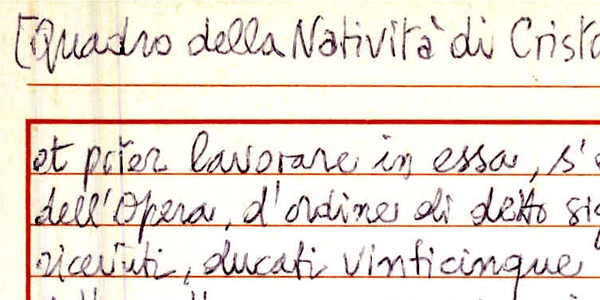 [Quadro della Natività di Cristo
et poter lavorare in essa, s'
dell'Opera, d'ordine di detto sig
ricevuti, ducati vinticinque